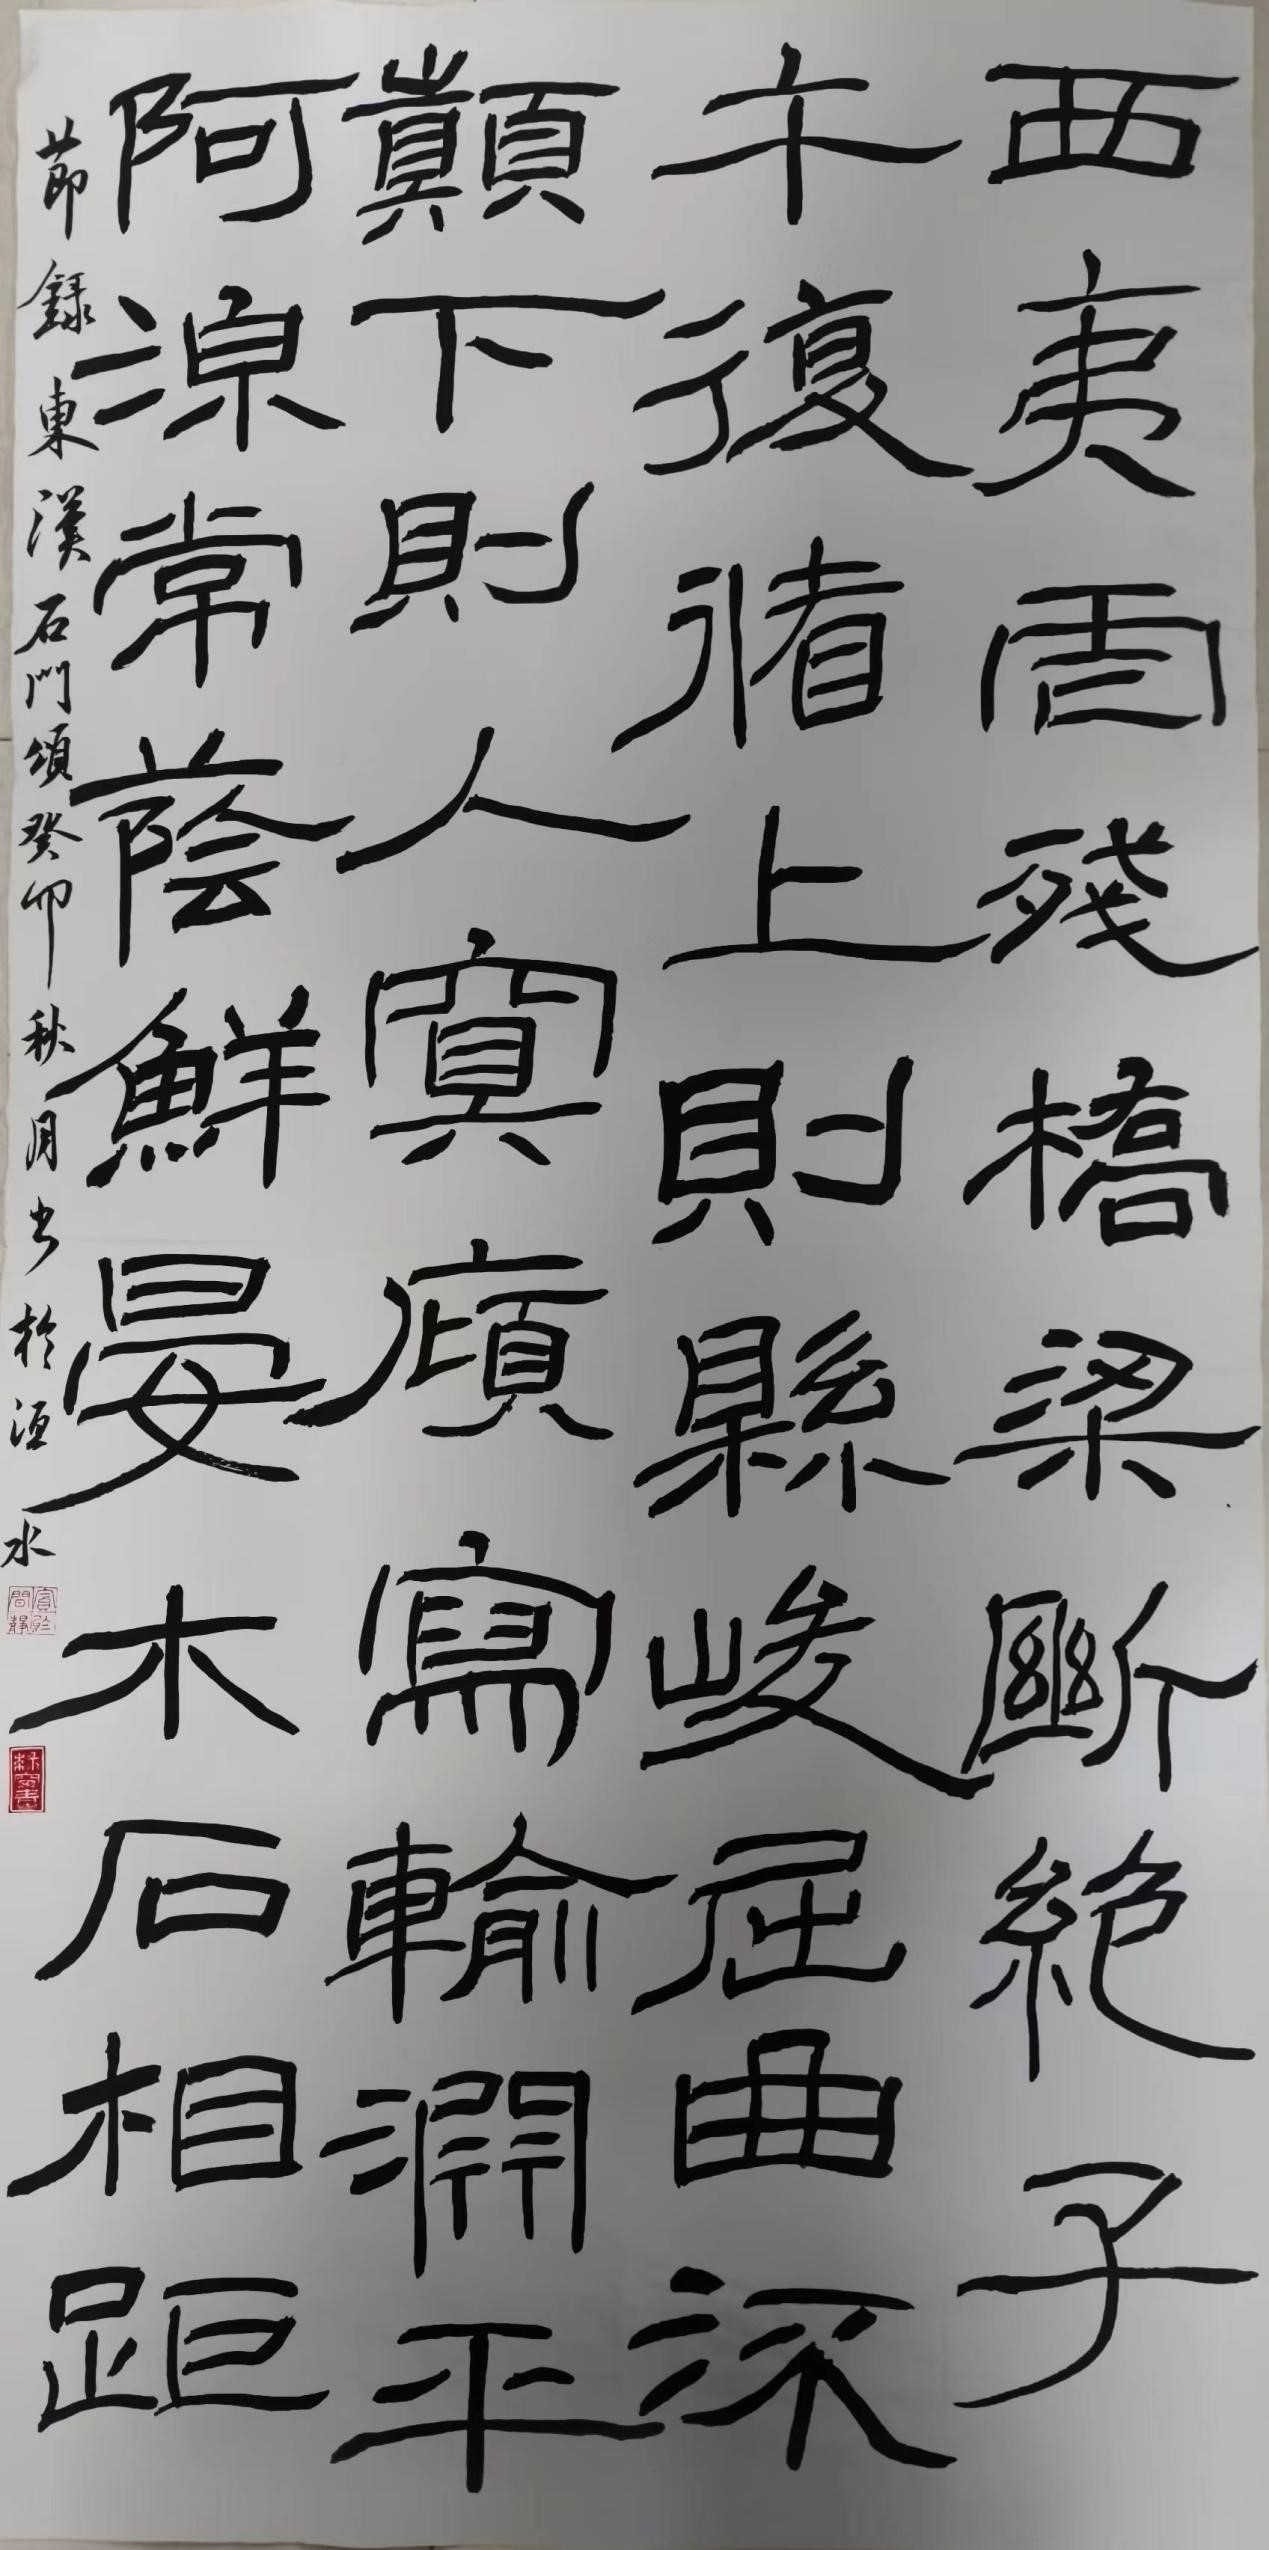 西夷虐殘橋梁斷絕子
午復循上則縣峻屈曲流
顛下則入冥廎寫輸淵平
阿湶常蔭鮮晏木石相距
節錄東漢石門頌癸卯秋月書於洹水